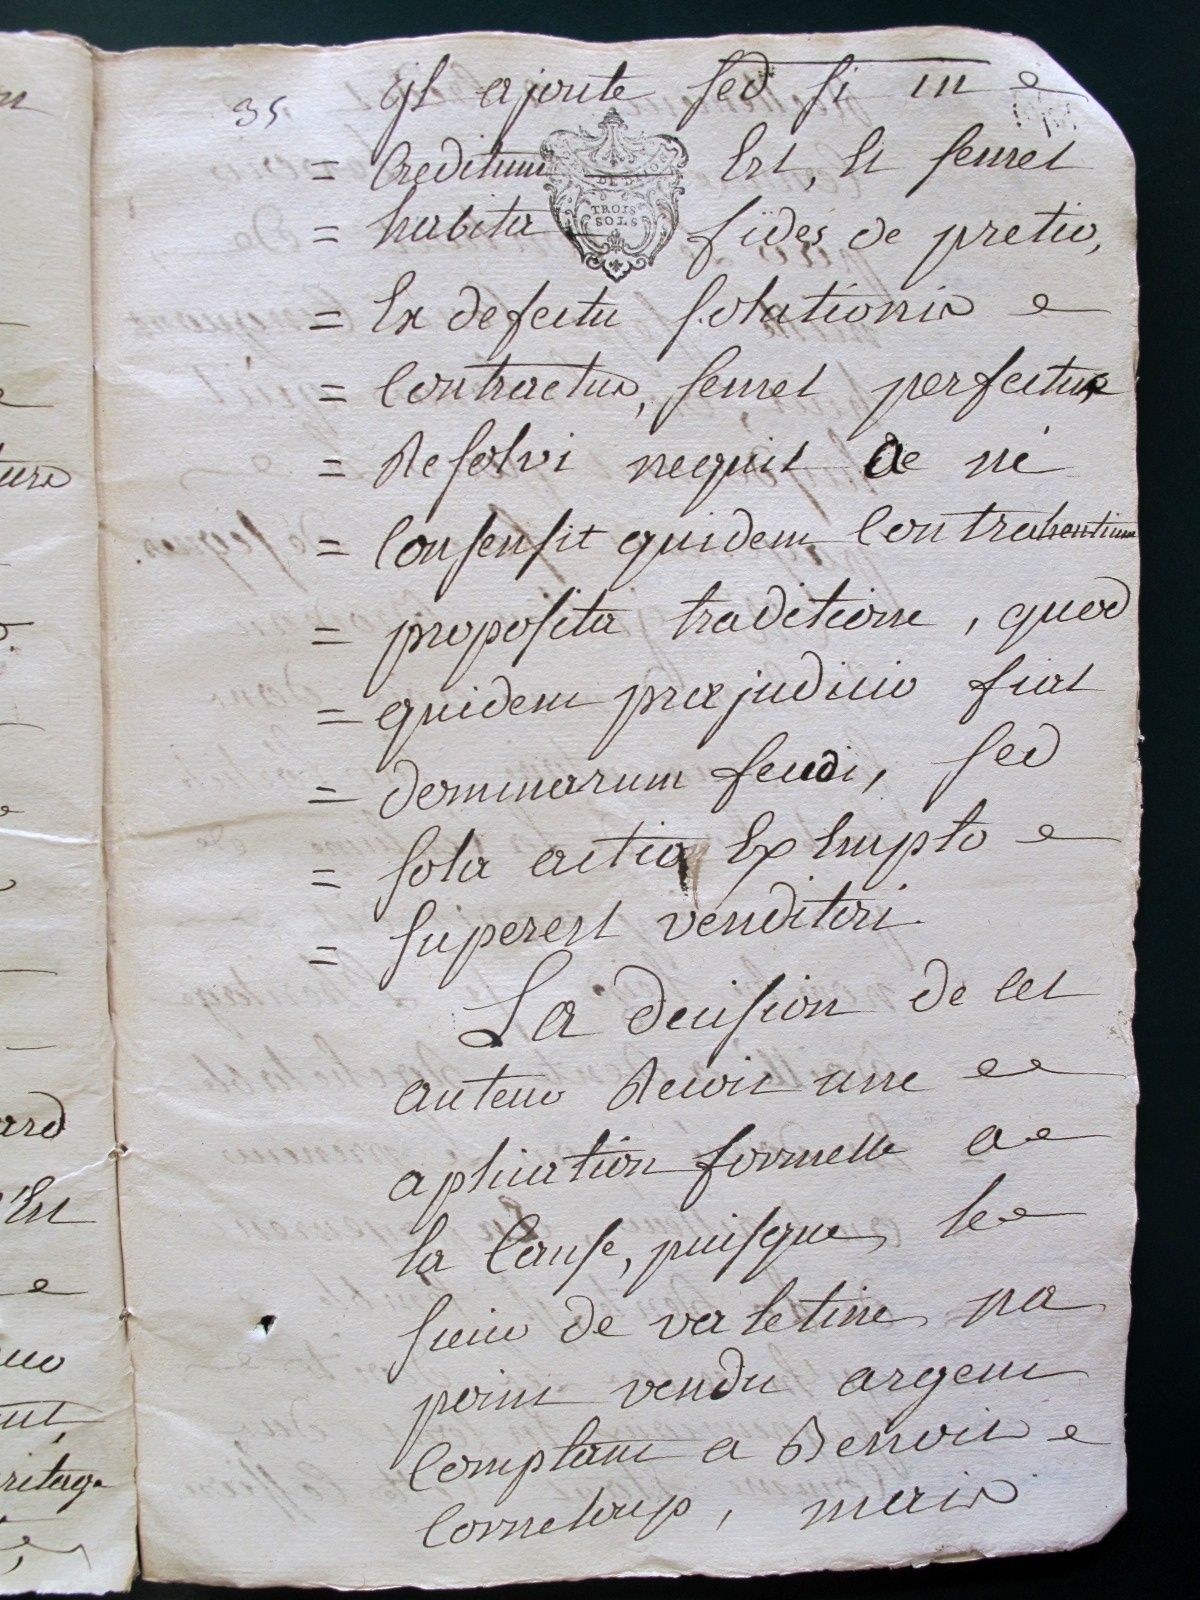 35
jl ajoute sed si in
= Creditum Est, Et semel
DE DIJON
TROIS
SOLS
= habita fides de pretio,
= Ex defectu solationis
= Contractus, semel perfectus
= Resolvi nequit de né
= Consensit quidem Contrahentium
= proposita traditione, quod
= quidem præjudicio fiat
= dominarum feudi, sed
= sola actio Ex Empto
= superest venditori.
La decision de cet
auteur Recoit une
aplication formelle a
la Cause, puisque le
sieur de valetine na
point vendu argent
Comptant a Benoit
Corneloup, mais
ard
Est
ritage